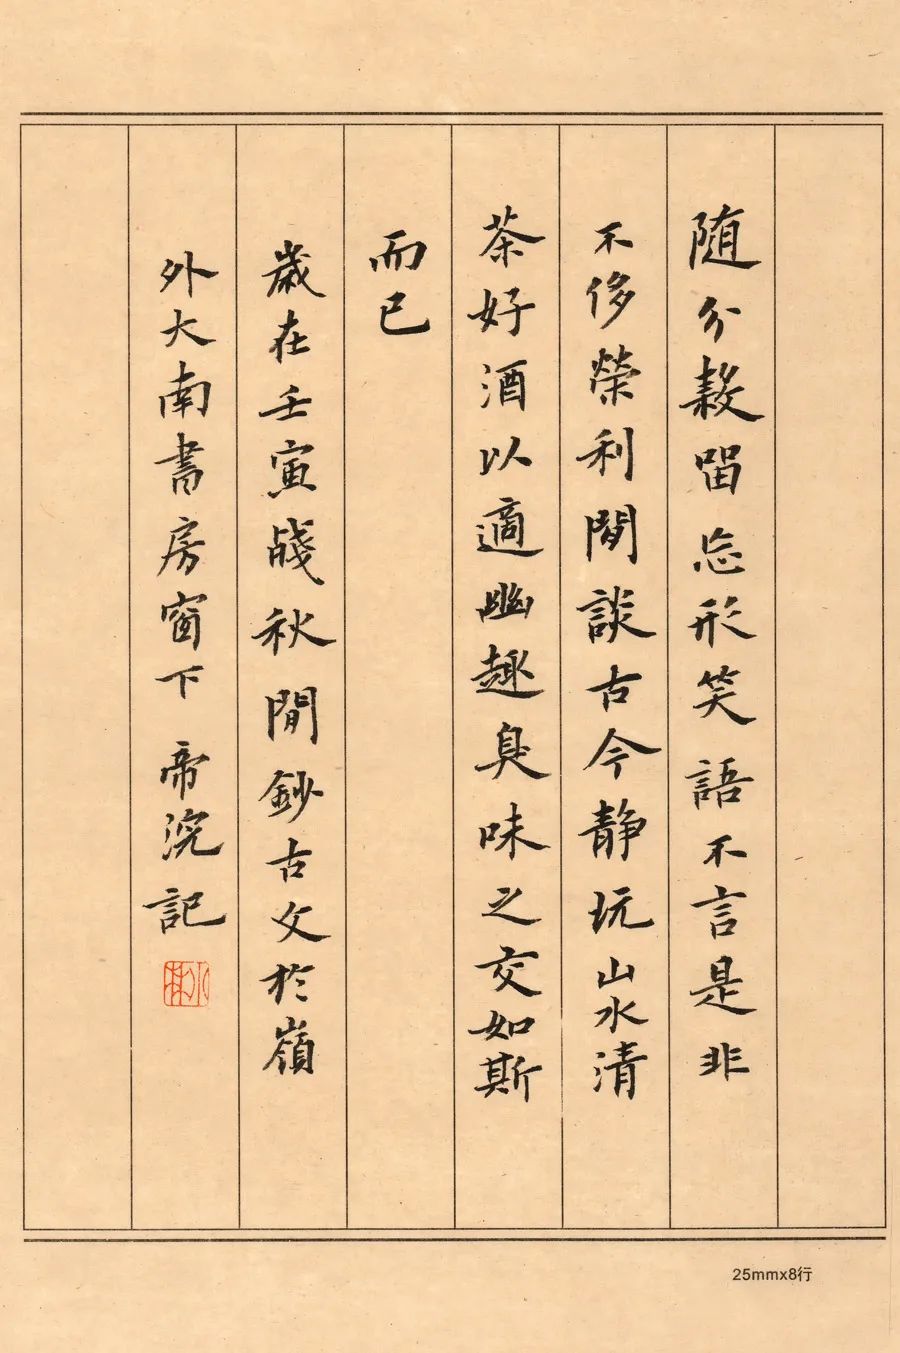 随分款留忘形笑語不言是非
不侈榮利閒談古今静玩山水清
茶好酒以適幽趣臭味之交如斯
而已
歲在壬寅殘秋閒鈔古文於嶺
外大南書房窗下 帝浣記
25mmx8行